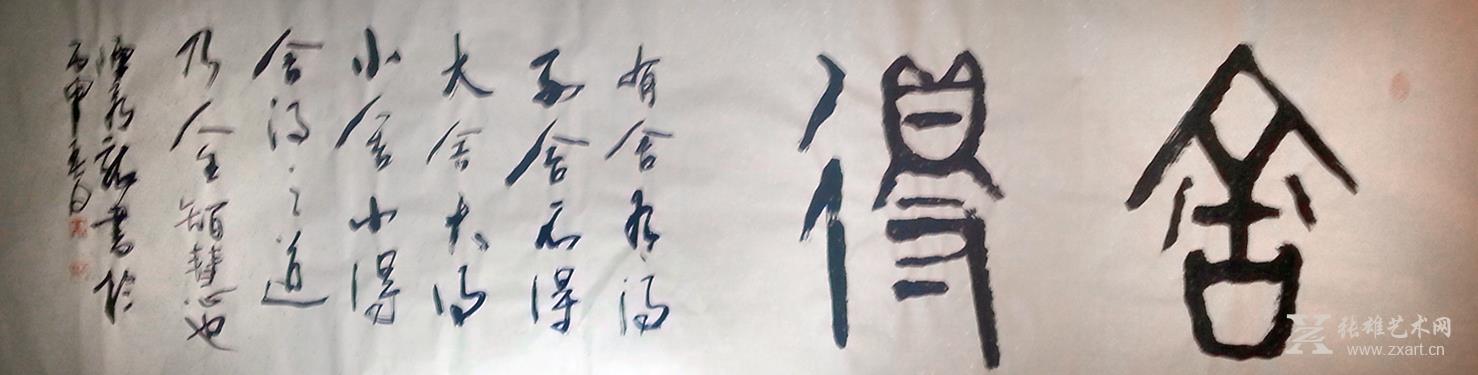 舍得
有舍有得
不舍不得
大舍大得
小舍小得
舍得之道
乃全智慧也
书于
丙申春月
张雄艺术网
www.zxart.cn